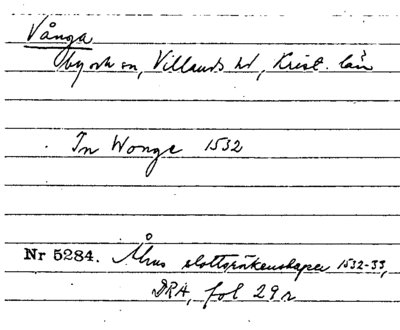 Vånga
by och sn, Villands hd, Krist. län
In Wonge 1532
Nr 5284. Åhus slottsräkenskaper 1532-33,
DRA, fol 29 r